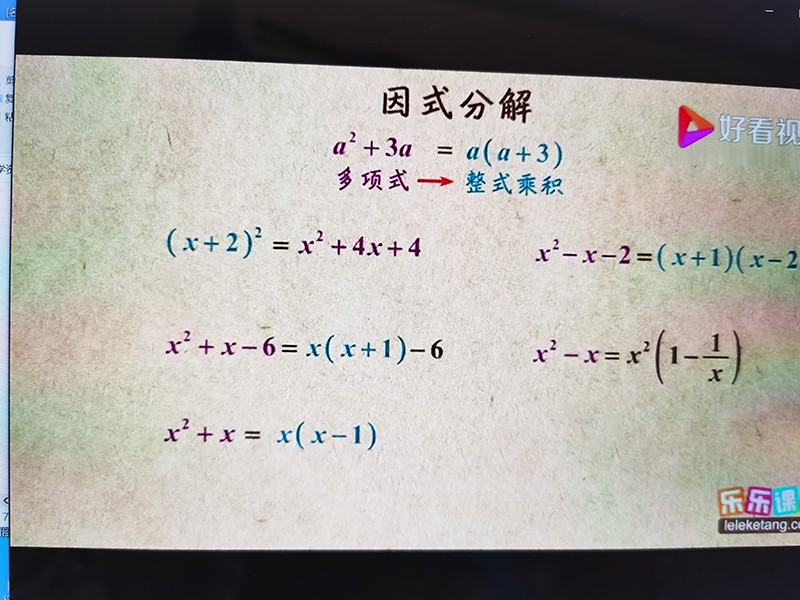 因式分解
好看视
a²+3a = a(a+3)
多项式→整式乘积
(x+2)²=x²+4x+4
x²-x-2=(x+1)(x-2
x²+x-6=x(x+1)-6
x²-x=x²(1-1/x)
x²+x= x(x-1)
乐乐课
leleketang.co